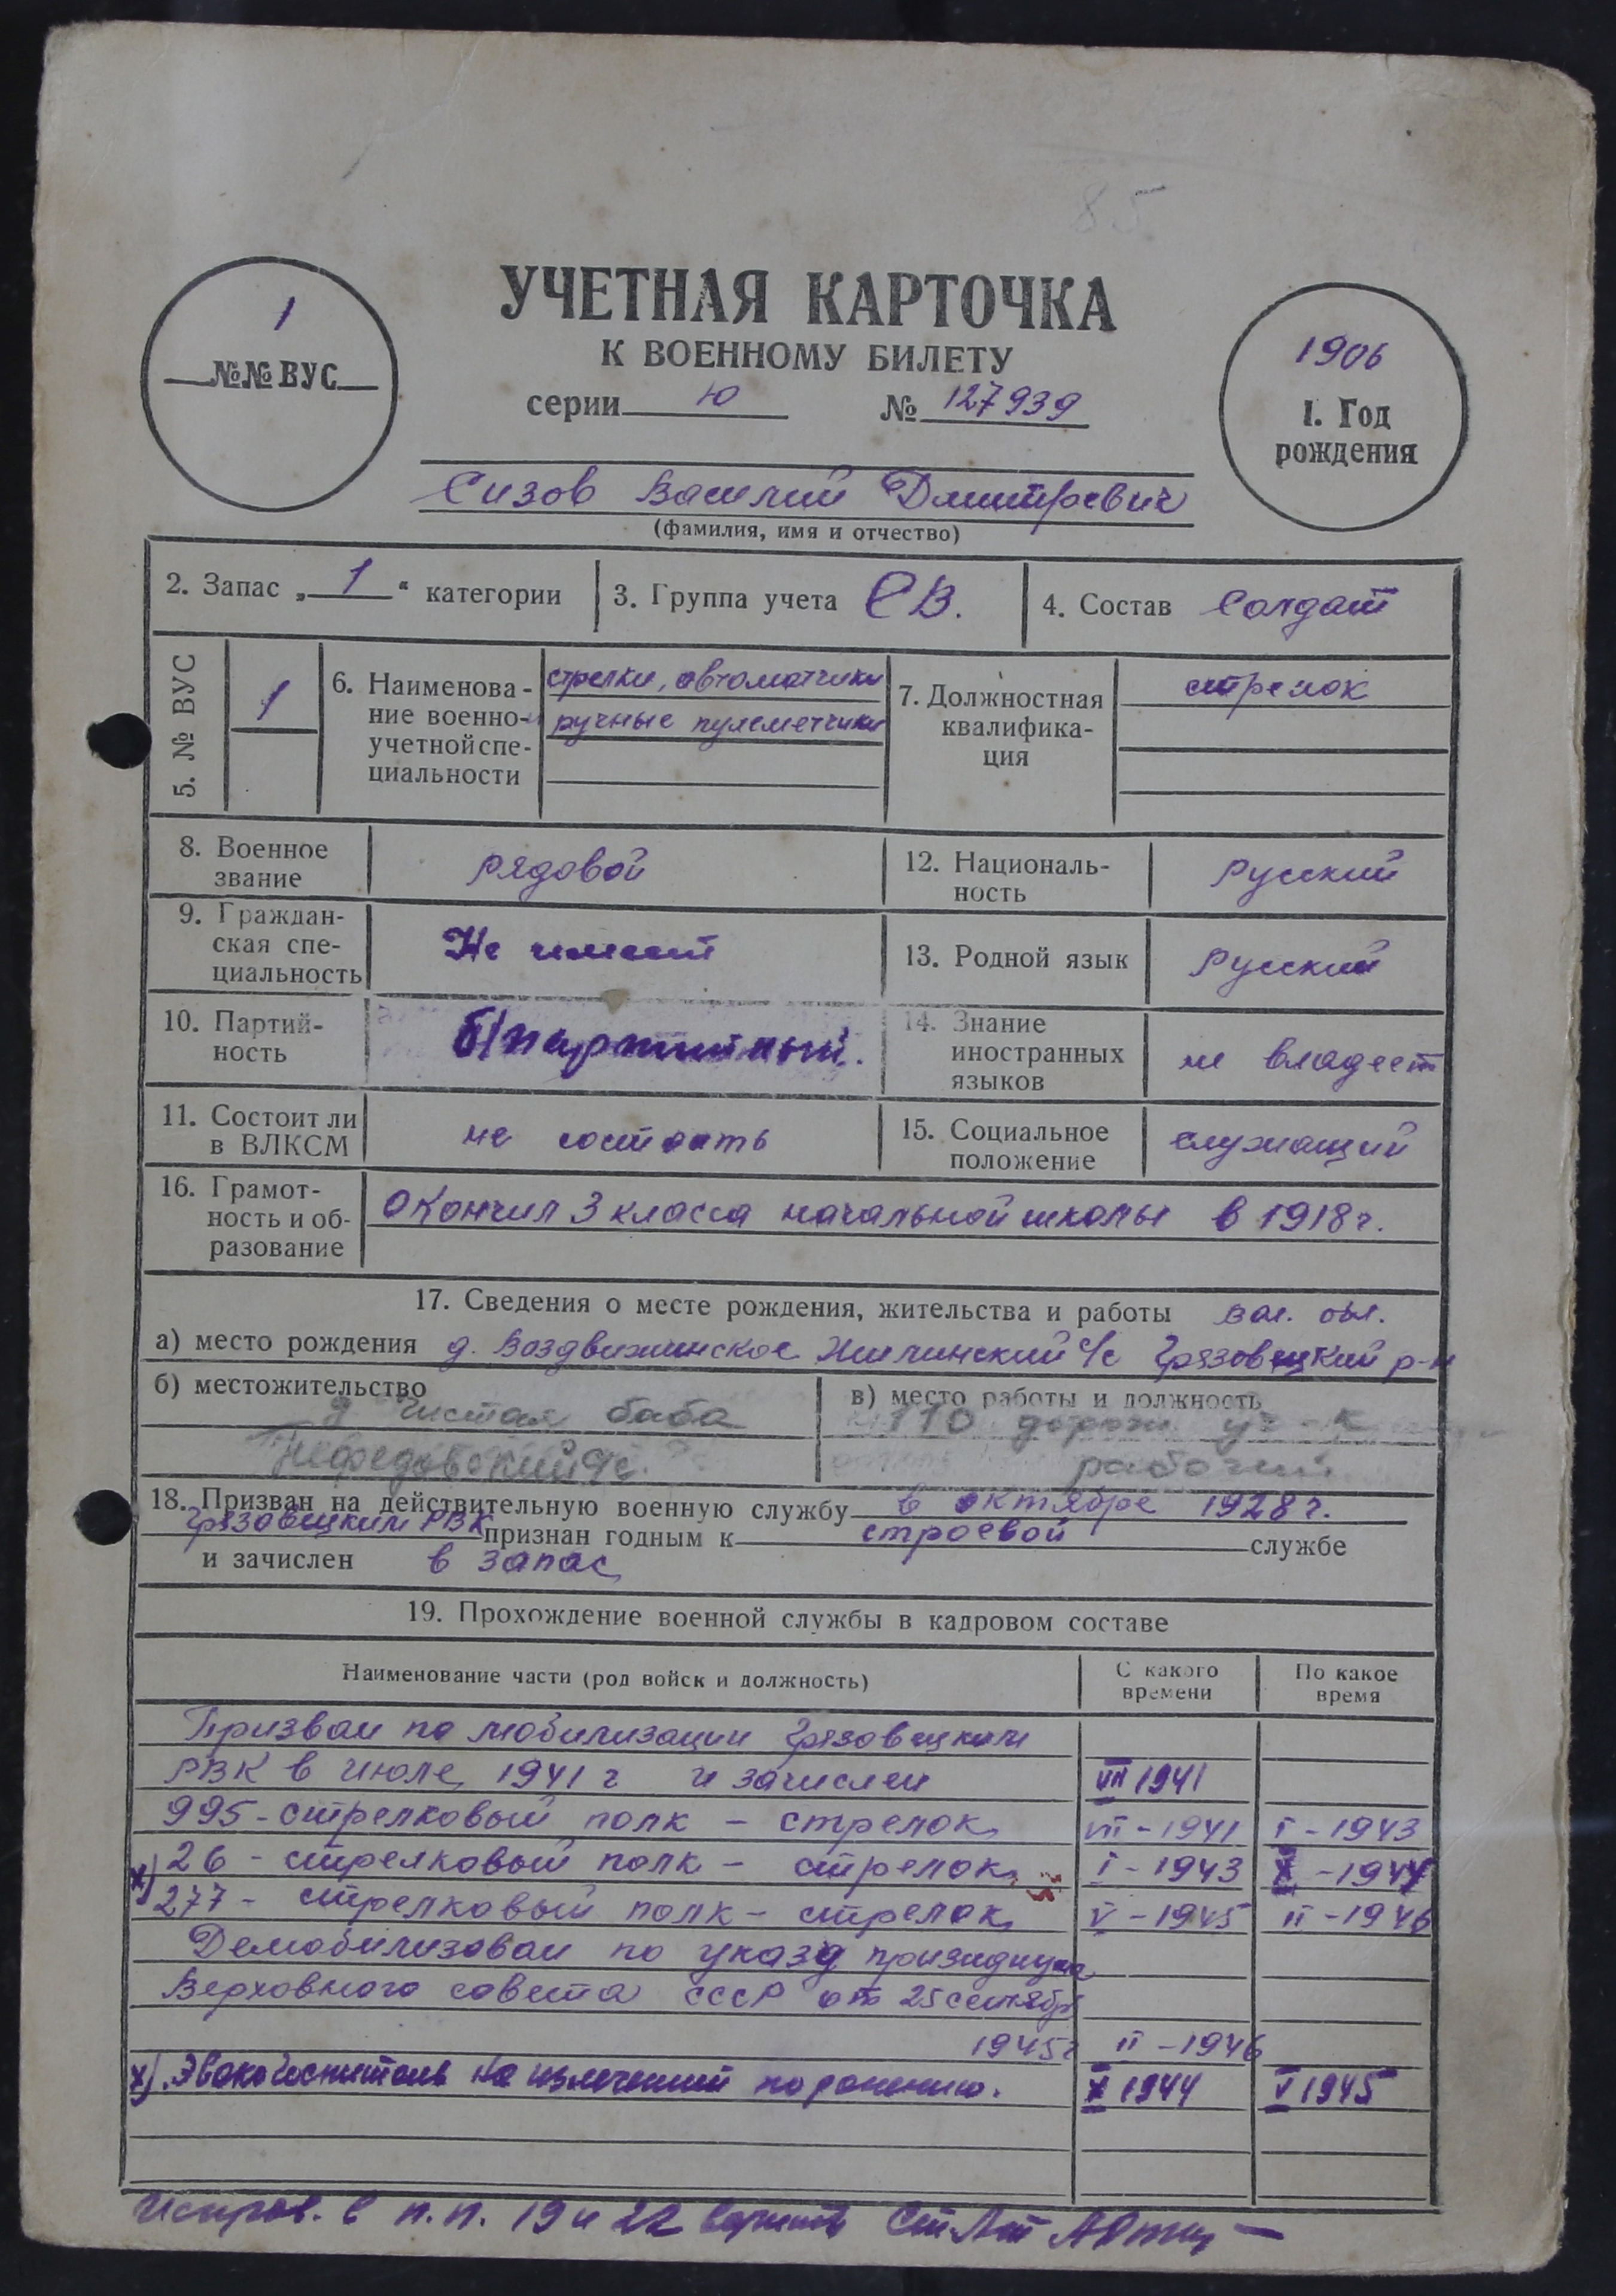 85
УЧЕТНАЯ КАРТОЧКА
К ВОЕННОМУ БИЛЕТУ
серии Ю № 127939
1
№№ ВУС
1906
1. Год
рождения
Сизов Василий Дмитревич
(фамилия, имя и отчество)
2. Запас „ 1 “ категории
3. Группа учета СВ.
4. Состав Солдат
5. № ВУС
1
6. Наименова-
ние военно-
учетной спе-
циальности
стрелки, автоматчики
и ручные пулеметчики
7. Должностная
квалифика-
ция
стрелок
8. Военное
звание
рядовой
12. Националь-
ность
Русский
9. Граждан-
ская спе-
циальность
Не имеет
13. Родной язык
Русский
10. Партий-
ность
б/партийный.
14. Знание
иностранных
языков
не владеет
11. Состоит ли
в ВЛКСМ
не состоять
15. Социальное
положение
служащий
16. Грамот-
ность и об-
разование
окончил 3 класса начальной школы в 1918 г.
17. Сведения о месте рождения, жительства и работы вол. обл.
а) место рождения д. Воздвиженское Жилинский с/с Грязовецкий р-н
б) местожительство
д Чистая баба
Нефедовский с/с.
в) место работы и должность
110 дорож уч-к
рабочий
18. Призван на действительную военную службу в октябре 1928 г.
Грязовецким РВК признан годным к строевой службе
и зачислен в запас
19. Прохождение военной службы в кадровом составе
Наименование части (род войск и должность)
С какого
времени
По какое
время
Призван по мобилизации Грязовецким
РВК в июле 1941 г и зачислен VII 1941
995 - стрелковый полк - стрелок VII - 1941 I - 1943
х) 26 - стрелковый полк - стрелок I - 1943 X - 1944
277 - стрелковый полк - стрелок V - 1945 II - 1946
Демобилизован по указу призидиума
Верховного совета СССР от 25 сентября
1945 г II - 1946
х). Эвакогоспиталь на излечении по ранению. X 1944 V 1945
Исправ. в п.п. 19 и 22 верить Ст. Лт